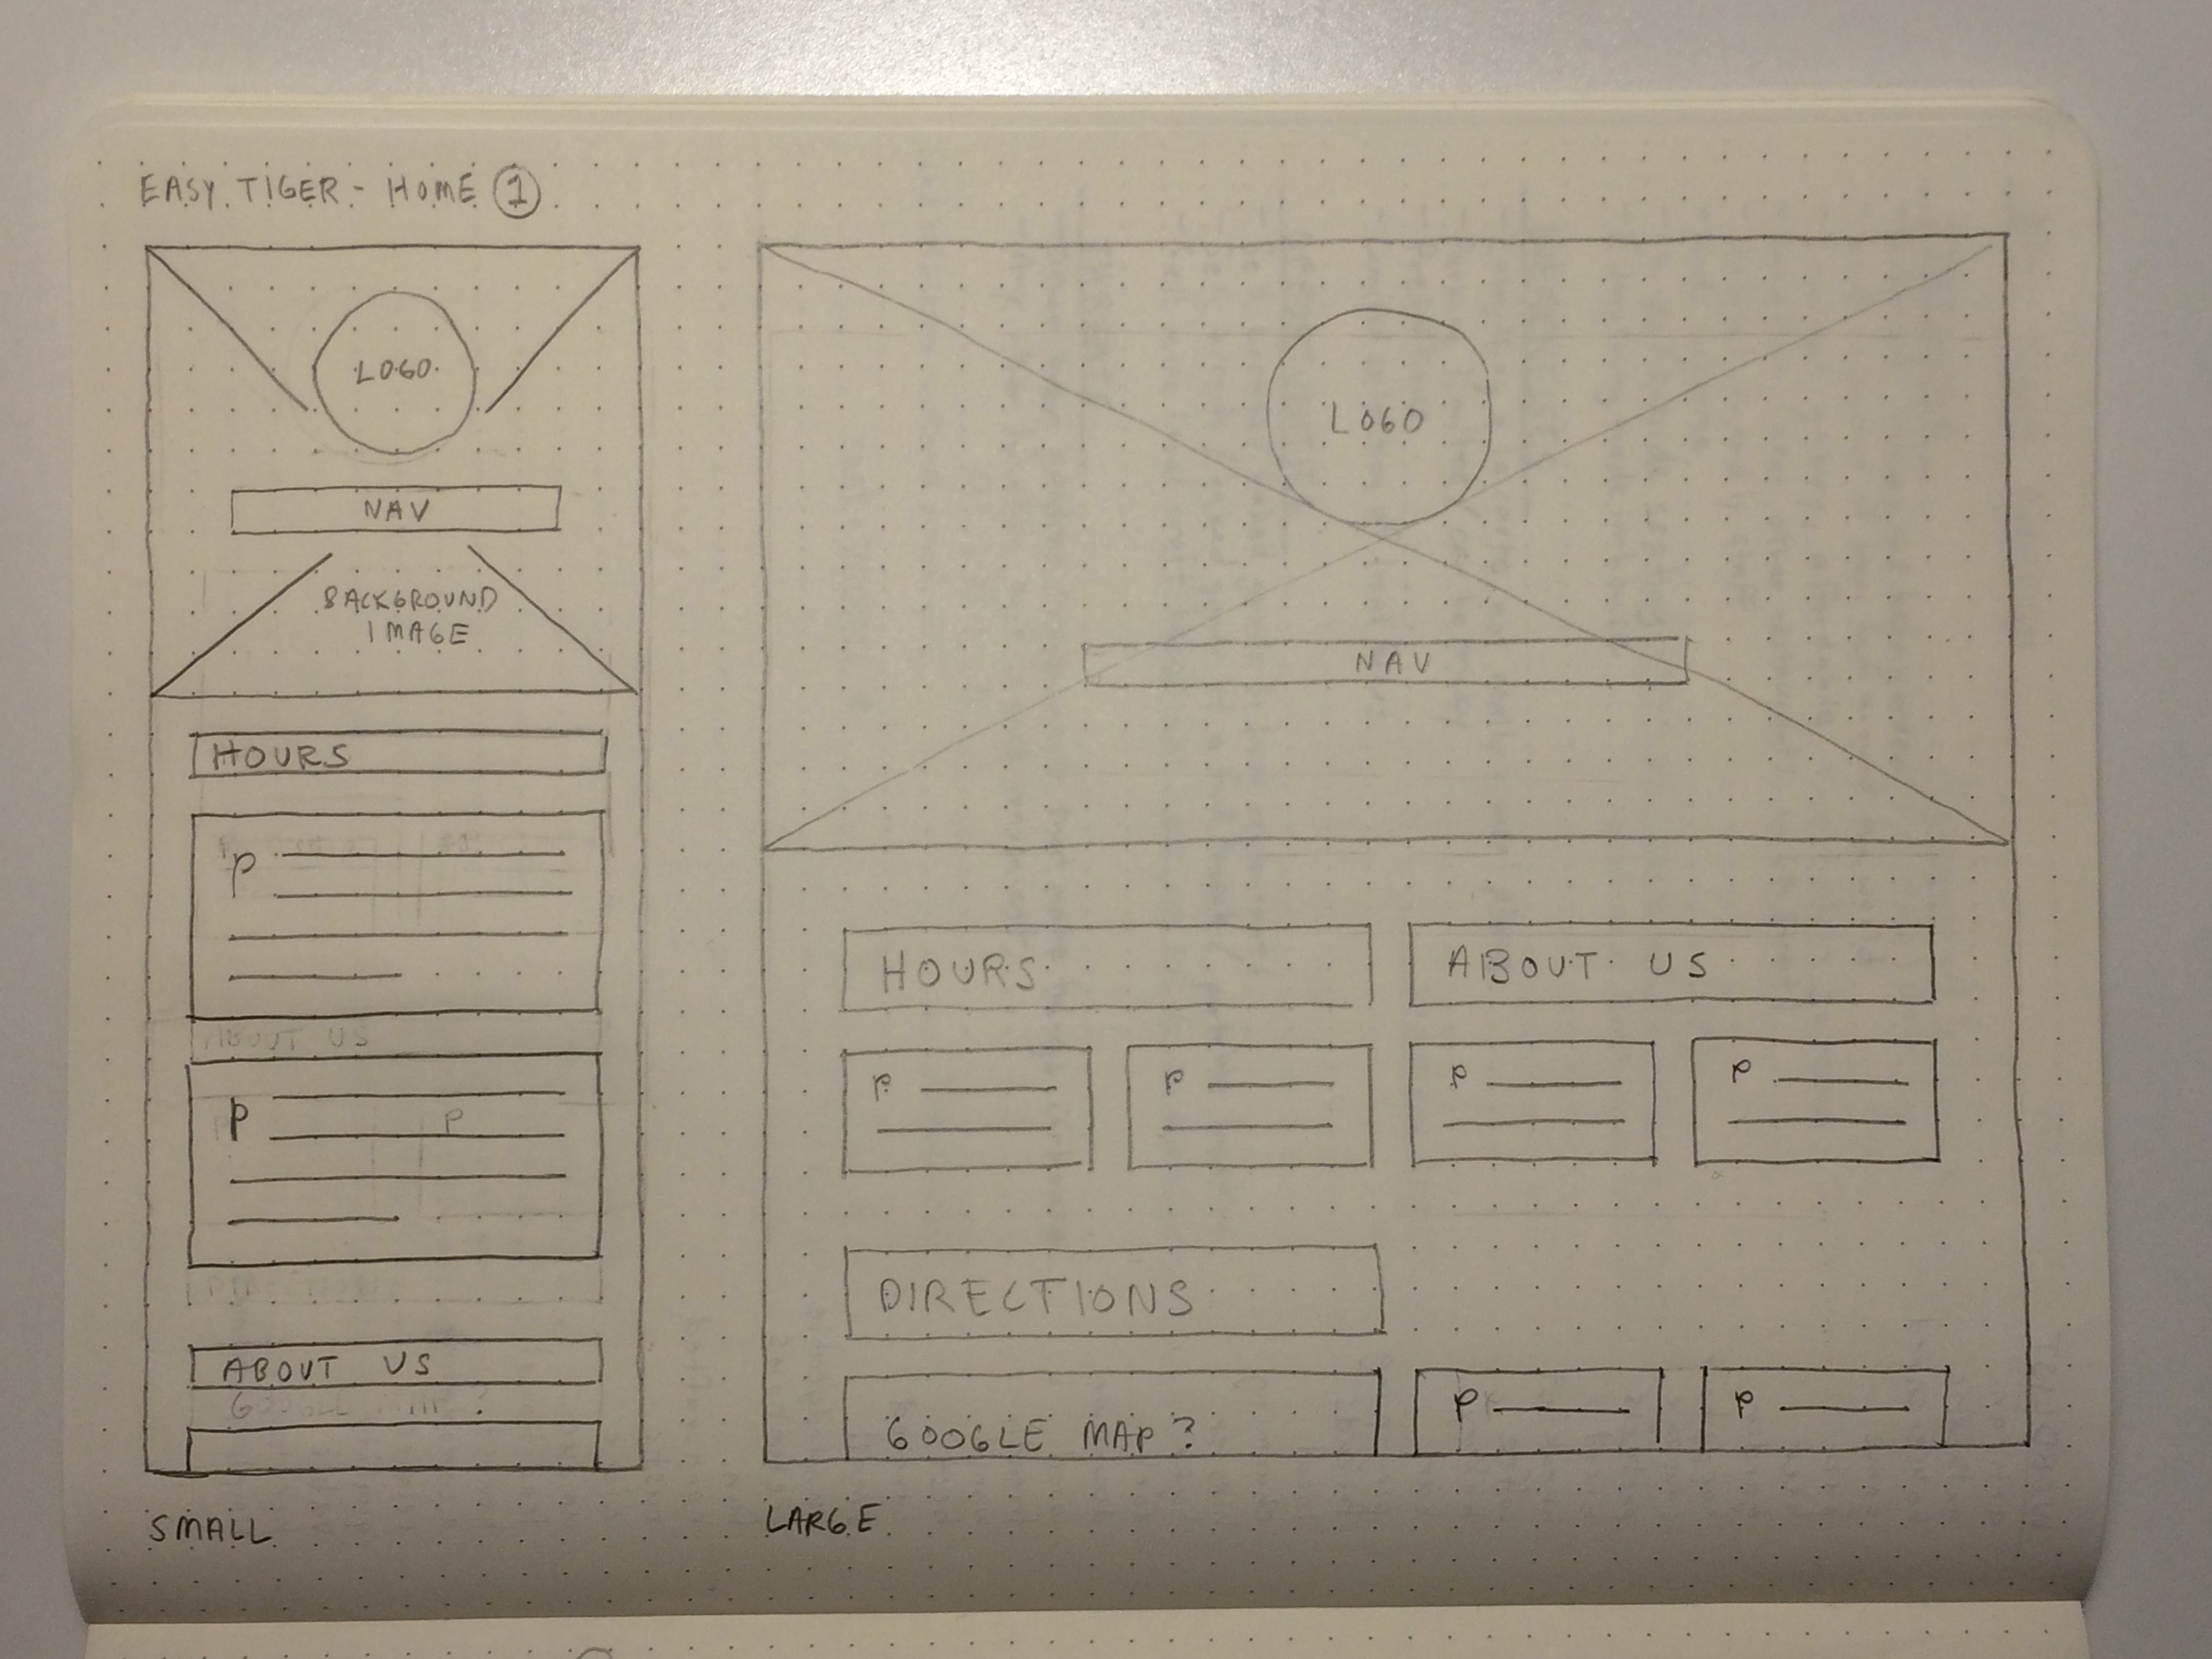 EASY TIGER - HOME 1
LOGO
NAV
BACKGROUND
IMAGE
HOURS
P
ABOUT US
P P
DIRECTIONS
ABOUT US
SMALL
LOGO
NAV
HOURS ABOUT US
P P P P
DIRECTIONS
GOOGLE MAP? P P
LARGE